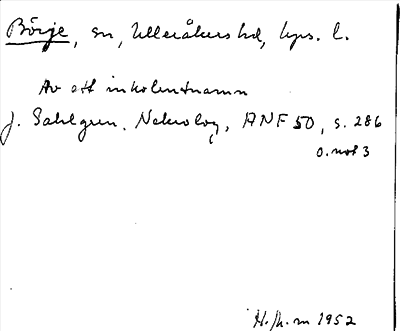 Börje, sn, Ulleråkers hd, Upps. l.
Av ett inbolentnamn
J. Sahlgren. Nekrolog, ANF 50, s. 286
o. not 3
H. 1952